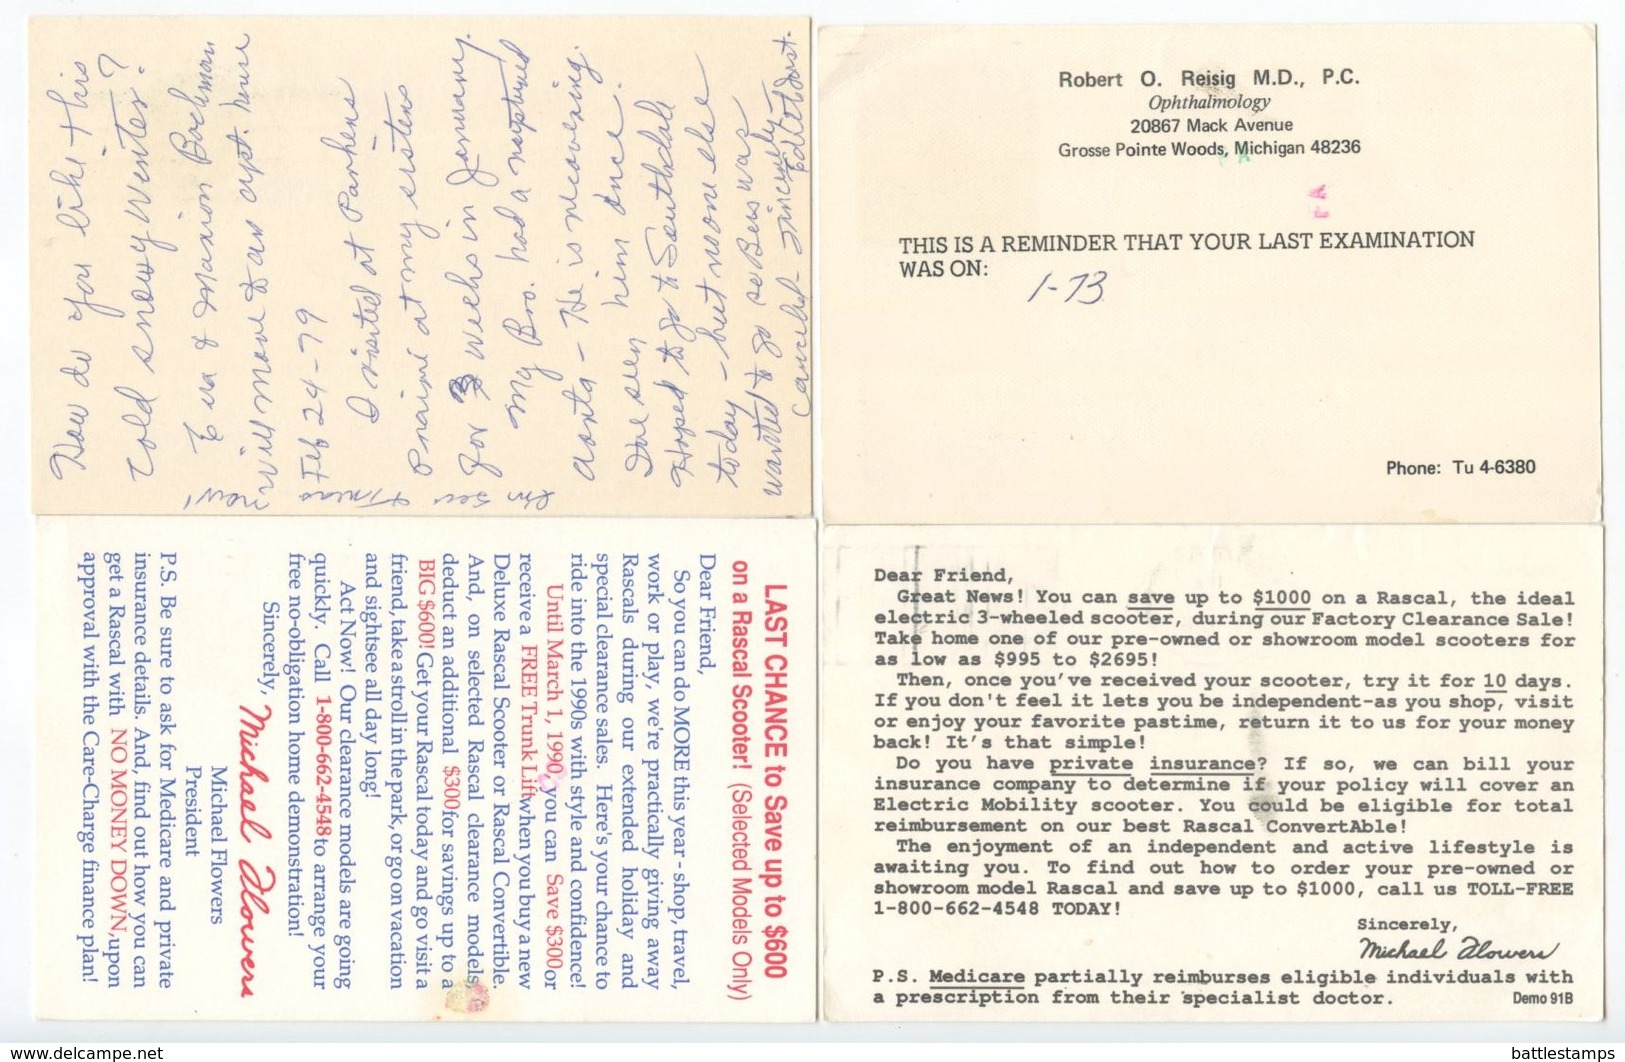 How do you like this
cold snowy winter?
Eva & Marion Bachman
will move to an apt. house
now!
Feb 24-79
I visited at Parkers
Prairie at my sisters
for 3 weeks in January.
My Bro. had a ruptured
aorta - He is recovering.
I've seen him once.
Hoped to go to Southdale
today - but no one else
wanted to go so Bus was
cancelled - Sincerely
Robert O. Reisig M.D., P.C.
Ophthalmology
20867 Mack Avenue
Grosse Pointe Woods, Michigan 48236
THIS IS A REMINDER THAT YOUR LAST EXAMINATION
WAS ON:
1-73
Phone: Tu 4-6380
LAST CHANCE to Save up to $600
on a Rascal Scooter! (Selected Models Only)
Dear Friend,
So you can do MORE this year - shop, travel,
work or play, we're practically giving away
Rascals during our extended holiday and
special clearance sales. Here's your chance to
ride into the 1990s with style and confidence!
Until March 1, 1990, you can Save $300 or
receive a FREE Trunk Lift when you buy a new
Deluxe Rascal Scooter or Rascal Convertible.
And, on selected Rascal clearance models,
deduct an additional $300 for savings up to a
BIG $600! Get your Rascal today and go visit a
friend, take a stroll in the park, or go on vacation
and sightsee all day long!
Act Now! Our clearance models are going
quickly. Call 1-800-662-4548 to arrange your
free no-obligation home demonstration!
Sincerely,
Michael Flowers
Michael Flowers
President
P.S. Be sure to ask for Medicare and private
insurance details. And, find out how you can
get a Rascal with NO MONEY DOWN, upon
approval with the Care-Charge finance plan!
Dear Friend,
Great News! You can save up to $1000 on a Rascal, the ideal
electric 3-wheeled scooter, during our Factory Clearance Sale!
Take home one of our pre-owned or showroom model scooters for
as low as $995 to $2695!
Then, once you've received your scooter, try it for 10 days.
If you don't feel it lets you be independent-as you shop, visit
or enjoy your favorite pastime, return it to us for your money
back! It's that simple!
Do you have private insurance? If so, we can bill your
insurance company to determine if your policy will cover an
Electric Mobility scooter. You could be eligible for total
reimbursement on our best Rascal ConvertAble!
The enjoyment of an independent and active lifestyle is
awaiting you. To find out how to order your pre-owned or
showroom model Rascal and save up to $1000, call us TOLL-FREE
1-800-662-4548 TODAY!
Sincerely,
Michael Flowers
P.S. Medicare partially reimburses eligible individuals with
a prescription from their specialist doctor.
Demo 91B
Visit www.delcampe.net
battlestamps